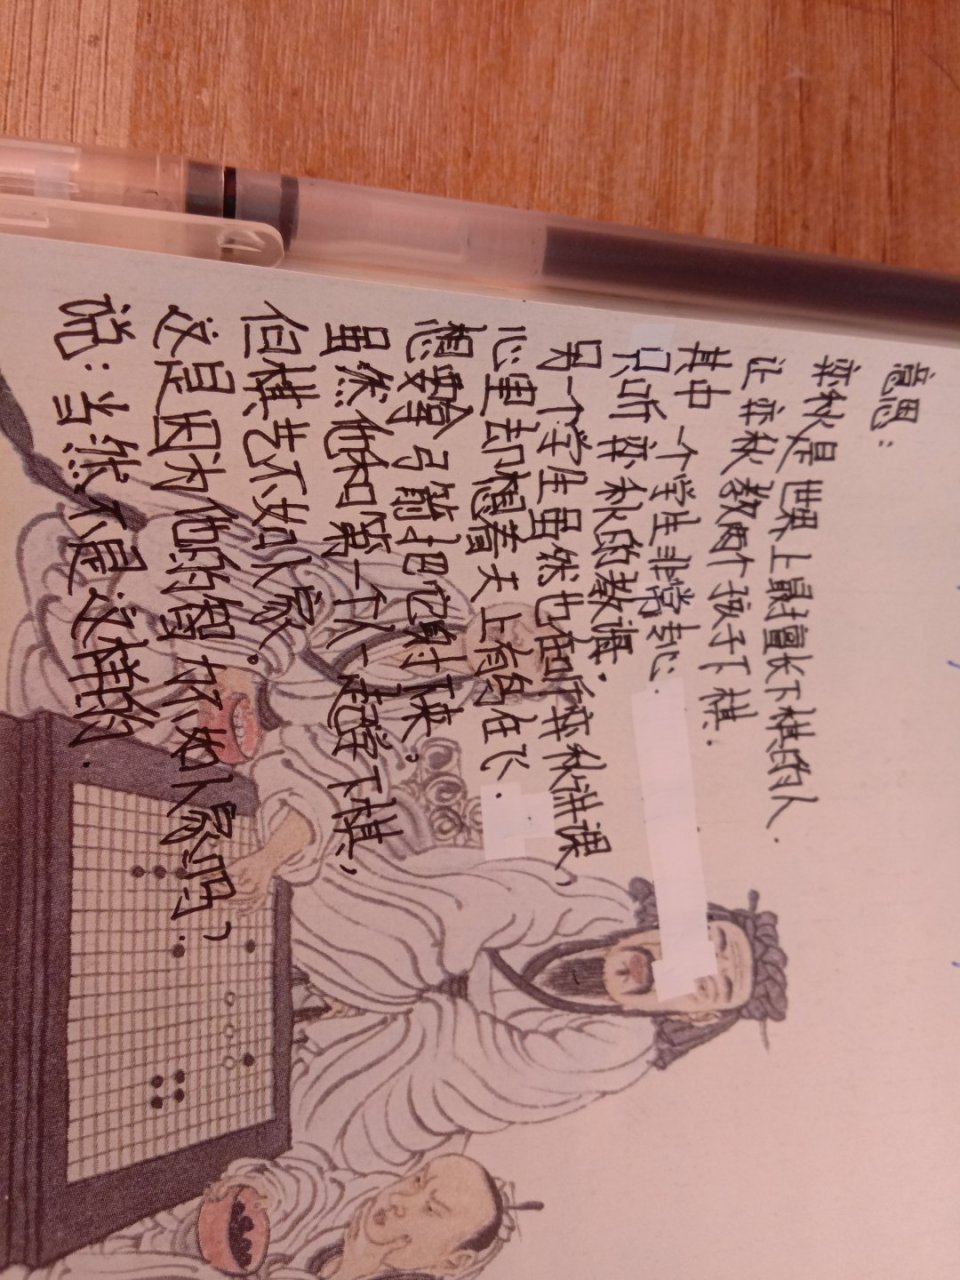 意思：
弈秋是世界上最擅长下棋的人.
让弈秋教两个孩子下棋.
其中一个学生非常专心.
只听弈秋的教诲.
另一个学生虽然也在听弈秋讲课,
心里却想着天上有鸟在飞.
想要拿弓箭把它射下来,
虽然他和第一个人一起学下棋,
但棋艺不如人家.
这是因为他的智力不如人家吗,
说：当然不是这样的.